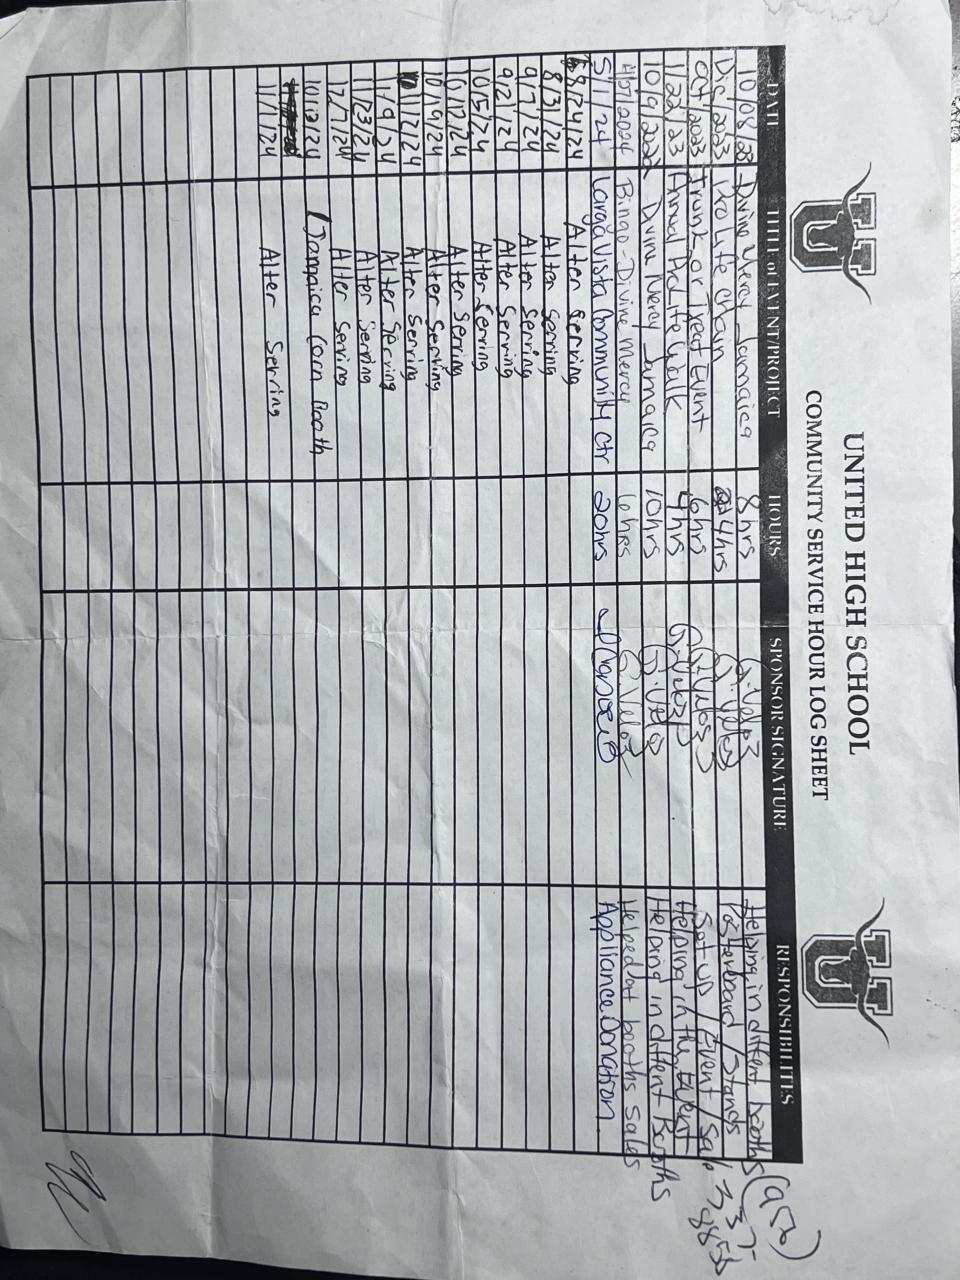 UNITED HIGH SCHOOL
COMMUNITY SERVICE HOUR LOG SHEET
DATE TITLE of EVENT/PROJECT HOURS SPONSOR SIGNATURE RESPONSIBILITIES
10/08/23 Divine Mercy Jamaica 8 hrs G. Veloz Helping in diffent booths
Dic/2023 Pro Life Chain 4 hrs G. Veloz Posterboard / Stands
Oct/2023 Trunk or Treat Event 6 hrs G. Veloz Set up / Event / Sale
1/22/23 Annual Prolife Walk 4 hrs G. Veloz Helping in the Event
10/9/2022 Divine Mercy Jamaica 10 hrs G. Veloz Helping in diffent Booths
2024 Bingo - Divine Mercy 6 hrs G. Veloz Helped at booths Sales
5/1/24 Larga Vista Community Ctr 20 hrs Appliance Donation.
8/24/24 Alter Serving
8/31/24 Alter Serving
9/7/24 Alter Serving
9/21/24 Alter Serving
10/5/24 Alter Serving
10/12/24 Alter Serving
10/19/24 Alter Serving
11/2/24 Alter Serving
11/9/24 Alter Serving
11/23/24 Alter Serving
12/7/24 Alter Serving
10/12/24 Jamaica Corn Booth
11/1/24 Alter Serving
(956)
337-
8858